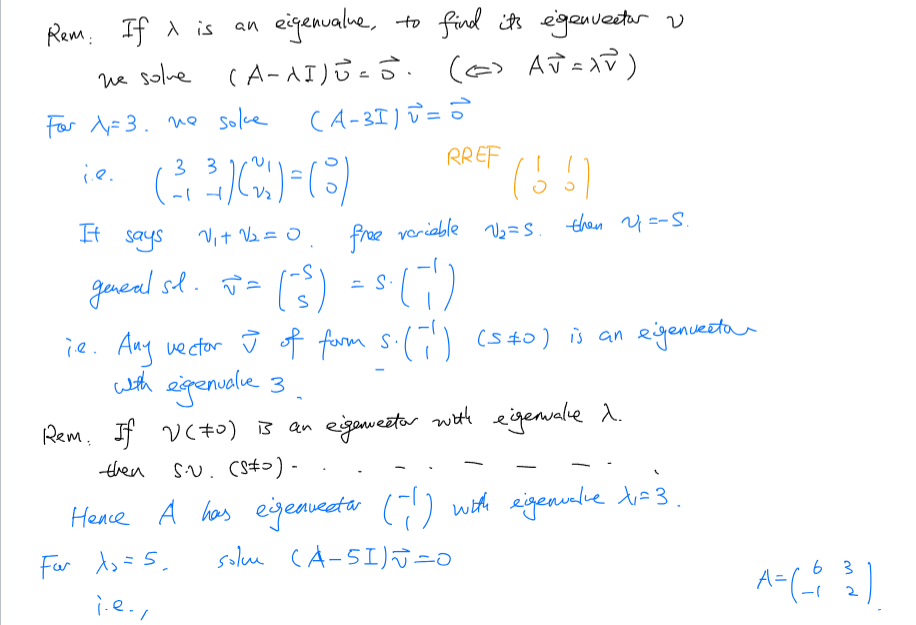 Rem. If λ is an eigenvalue, to find its eigenvector v
we solve (A-λI)v⃗ = 0⃗. (⟺ Av⃗ = λv⃗)
For λ₁=3. we solve (A-3I)v⃗ = 0⃗
i.e. (3 3; -1 -1)(v₁; v₂) = (0; 0) RREF (1 1; 0 0)
It says v₁+v₂=0. free variable v₂=s. then v₁=-s.
general sol. v⃗ = (-s; s) = s·(-1; 1)
i.e. Any vector v⃗ of form s·(-1; 1) (s≠0) is an eigenvector
with eigenvalue 3.
Rem. If v(≠0) is an eigenvector with eigenvalue λ.
then s·v. (s≠0) - . . . - . - - - .
Hence A has eigenvector (-1; 1) with eigenvalue λ₁=3.
For λ₂=5. solve (A-5I)v⃗=0
i.e., A=(6 3; -1 2).